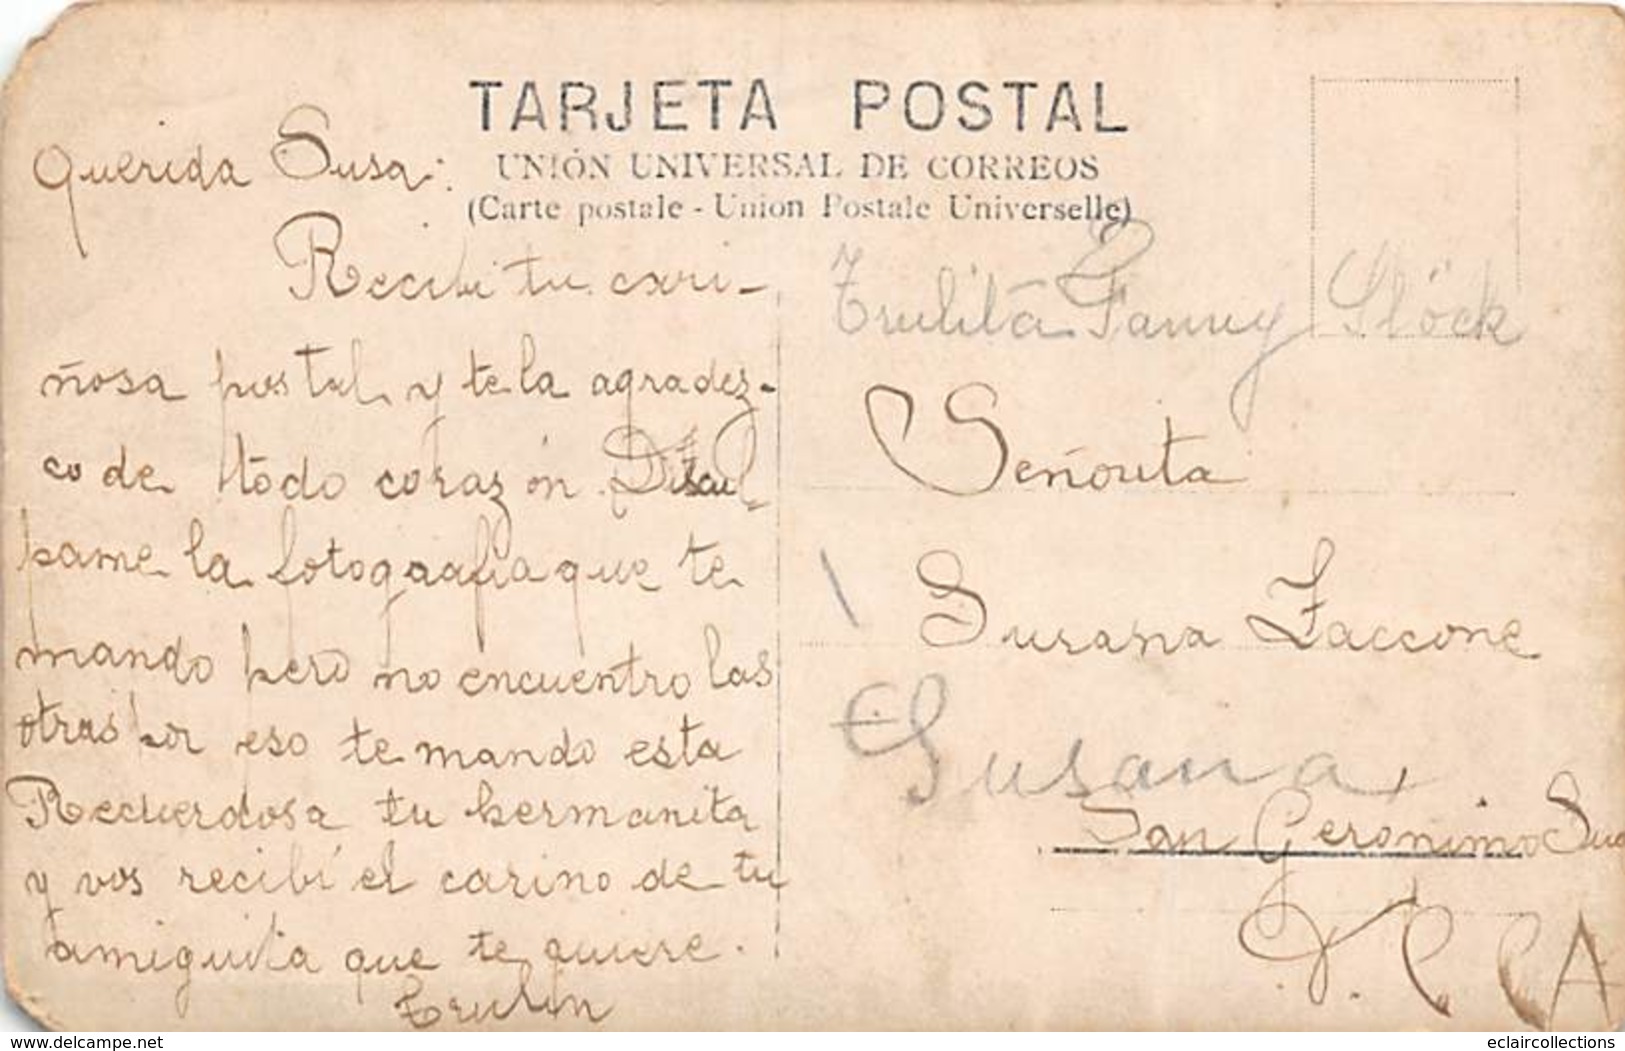 TARJETA POSTAL
UNIÓN UNIVERSAL DE CORREOS
(Carte postale - Union Postale Universelle)
Querida Susa:
Recibi tu cari-
ñosa postal y te la agradez-
co de todo corazón. Discul
pame la fotografia que te
mando pero no encuentro las
otras por eso te mando esta
Recuerdosa tu hermanita
y vos recibí el carino de tu
amiguita que te quiere.
Fanny Slöck
Señorita
Susana Zaccone
Susana
San Geronimo Sud
F. C. C. A
delcampe.net
eclaircollections